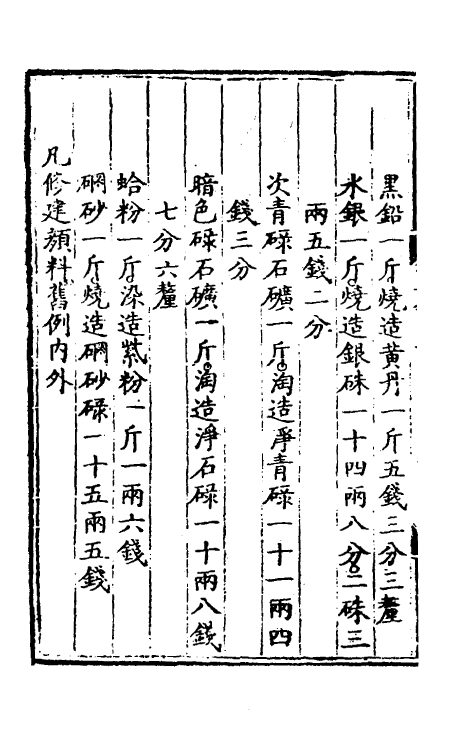 黑鉛一斤燒造黃丹一斤五錢三分三釐
水銀一斤燒造銀硃一十四兩八分二硃三
兩五錢二分
次青碌石礦一斤淘造淨青碌一十一兩四
錢三分
暗色碌石礦一斤淘造淨石碌一十兩八錢
七分六釐
蛤粉一斤染造紫粉一斤一兩六錢
碙砂一斤燒造碙砂碌一十五兩五錢
凡修建顏料舊例內外